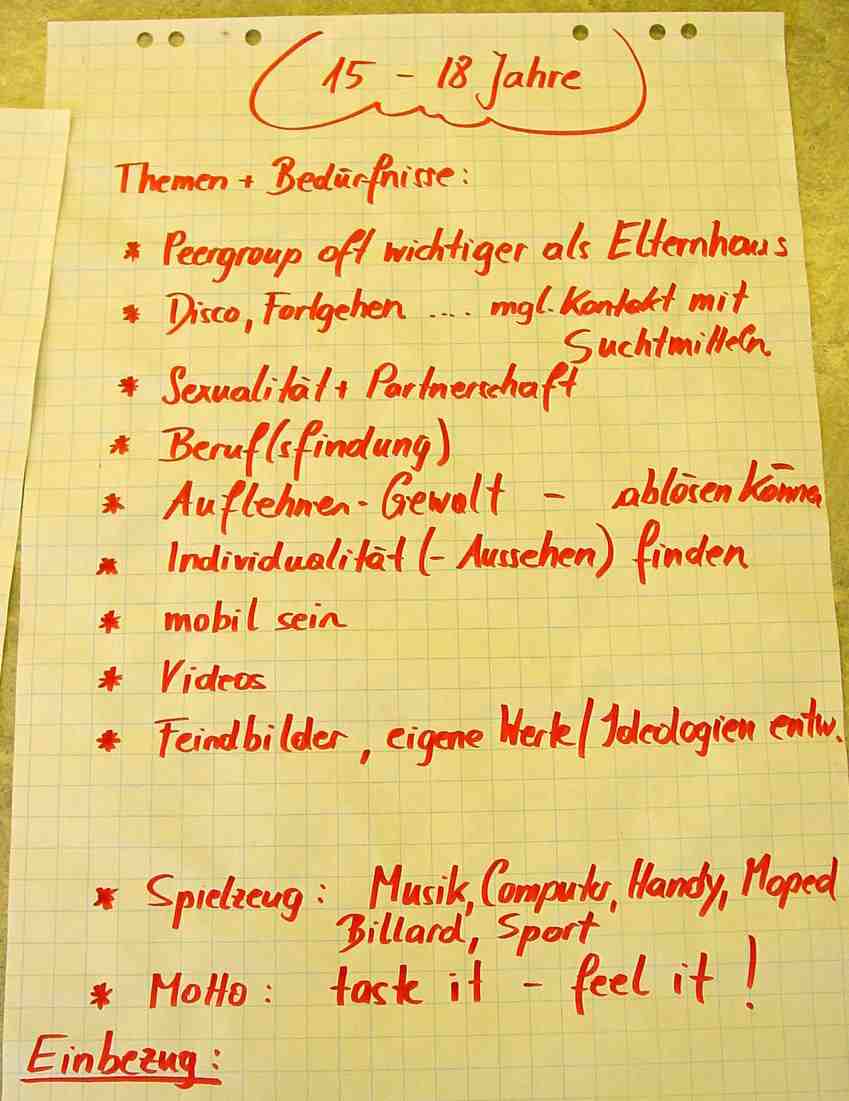 15 - 18 Jahre
Themen + Bedürfnisse:
* Peergroup oft wichtiger als Elternhaus
* Disco, Fortgehen .... mgl. Kontakt mit
Suchtmitteln
* Sexualität + Partnerschaft
* Beruf(sfindung)
* Auflehnen - Gewalt - ablösen können
* Individualität (- Aussehen) finden
* mobil sein
* Videos
* Feindbilder, eigene Werte/Ideologien entw.
* Spielzeug: Musik, Computer, Handy, Moped
Billard, Sport
* Motto: taste it - feel it!
Einbezug: